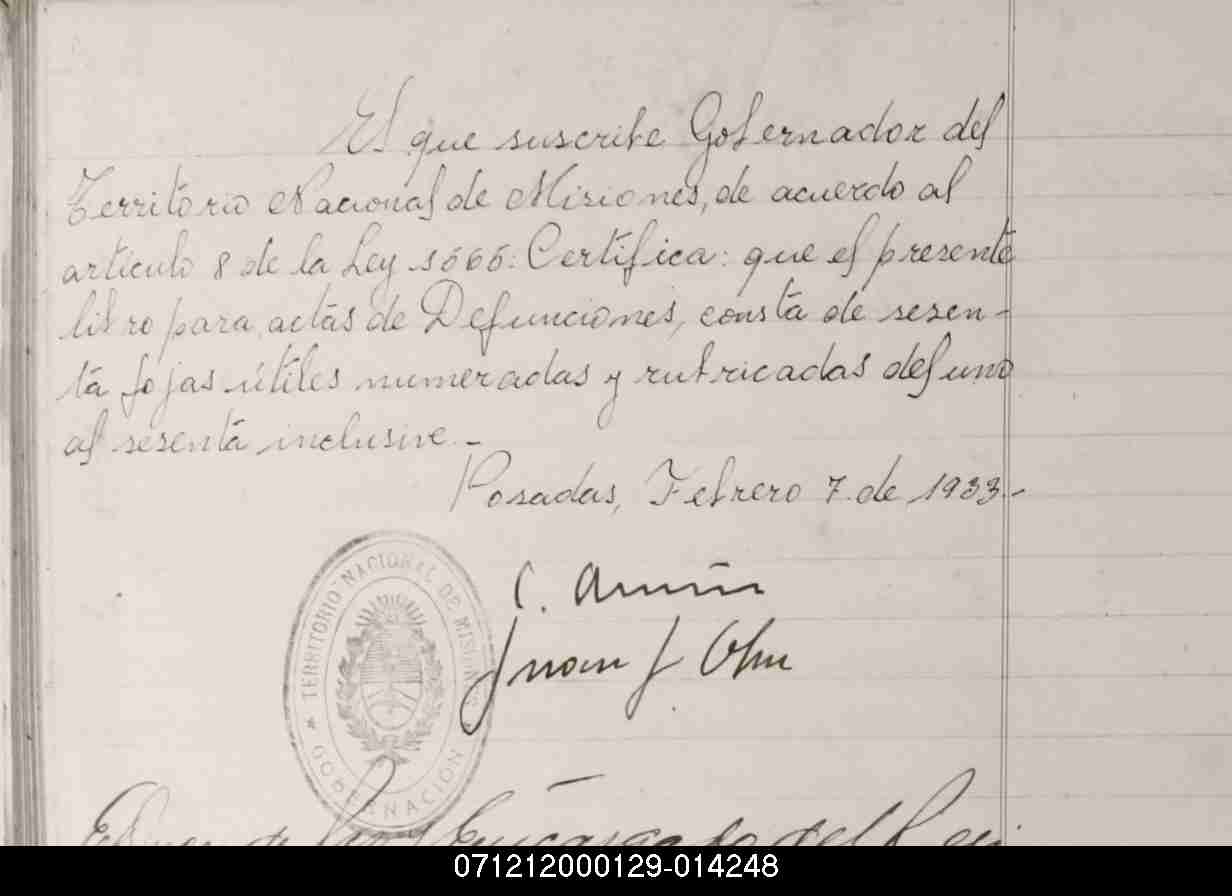 El que suscribe Gobernador del
Territorio Nacional de Misiones, de acuerdo al
artículo 8 de la Ley 1565: Certifica: que el presente
libro para actas de Defunciones, consta de sesen-
ta fojas útiles numeradas y rubricadas del uno
al sesenta inclusive.-
Posadas, Febrero 7 de 1933.-
TERRITORIO NACIONAL DE MISIONES
GOBERNACIÓN
C.
Juan J.
del
071212000129-014248